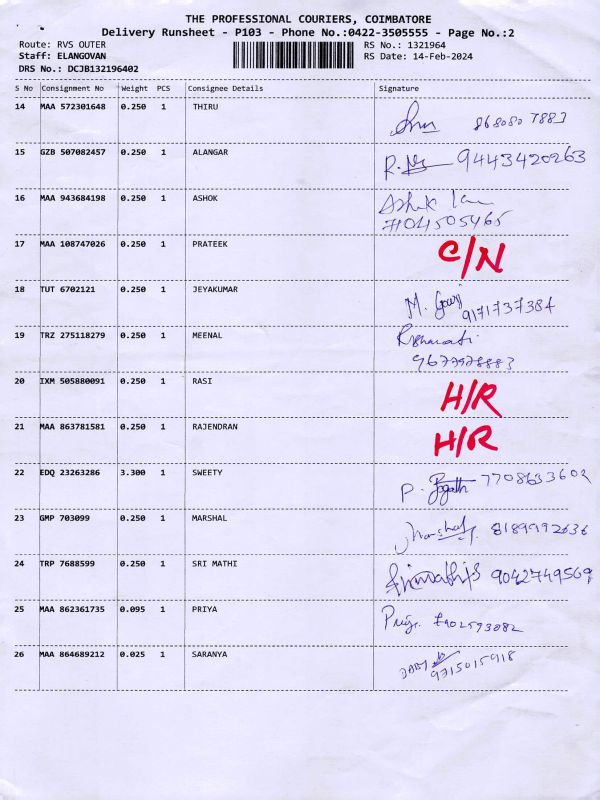 THE PROFESSIONAL COURIERS, COIMBATORE
Delivery Runsheet - P103 - Phone No.:0422-3505555 - Page No.:2
Route: RVS OUTER RS No.: 1321964
Staff: ELANGOVAN RS Date: 14-Feb-2024
DRS No.: DCJB132196402
S No Consignment No Weight PCS Consignee Details Signature
14 MAA 572301648 0.250 1 THIRU
868080 7883
15 GZB 507082457 0.250 1 ALANGAR
9443420263
16 MAA 943684198 0.250 1 ASHOK
Ashok
7104505465
17 MAA 108747026 0.250 1 PRATEEK
C/N
18 TUT 6702121 0.250 1 JEYAKUMAR
M. Gowri
9171737384
19 TRZ 275118279 0.250 1 MEENAL
20 IXM 505880091 0.250 1 RASI
H/R
21 MAA 863781581 0.250 1 RAJENDRAN
H/R
22 EDQ 23263286 3.300 1 SWEETY
P. 7708633602
23 GMP 703099 0.250 1 MARSHAL
8189992636
24 TRP 7688599 0.250 1 SRI MATHI
9042749569
25 MAA 862361735 0.095 1 PRIYA
Priya
26 MAA 864689212 0.025 1 SARANYA
9715015918